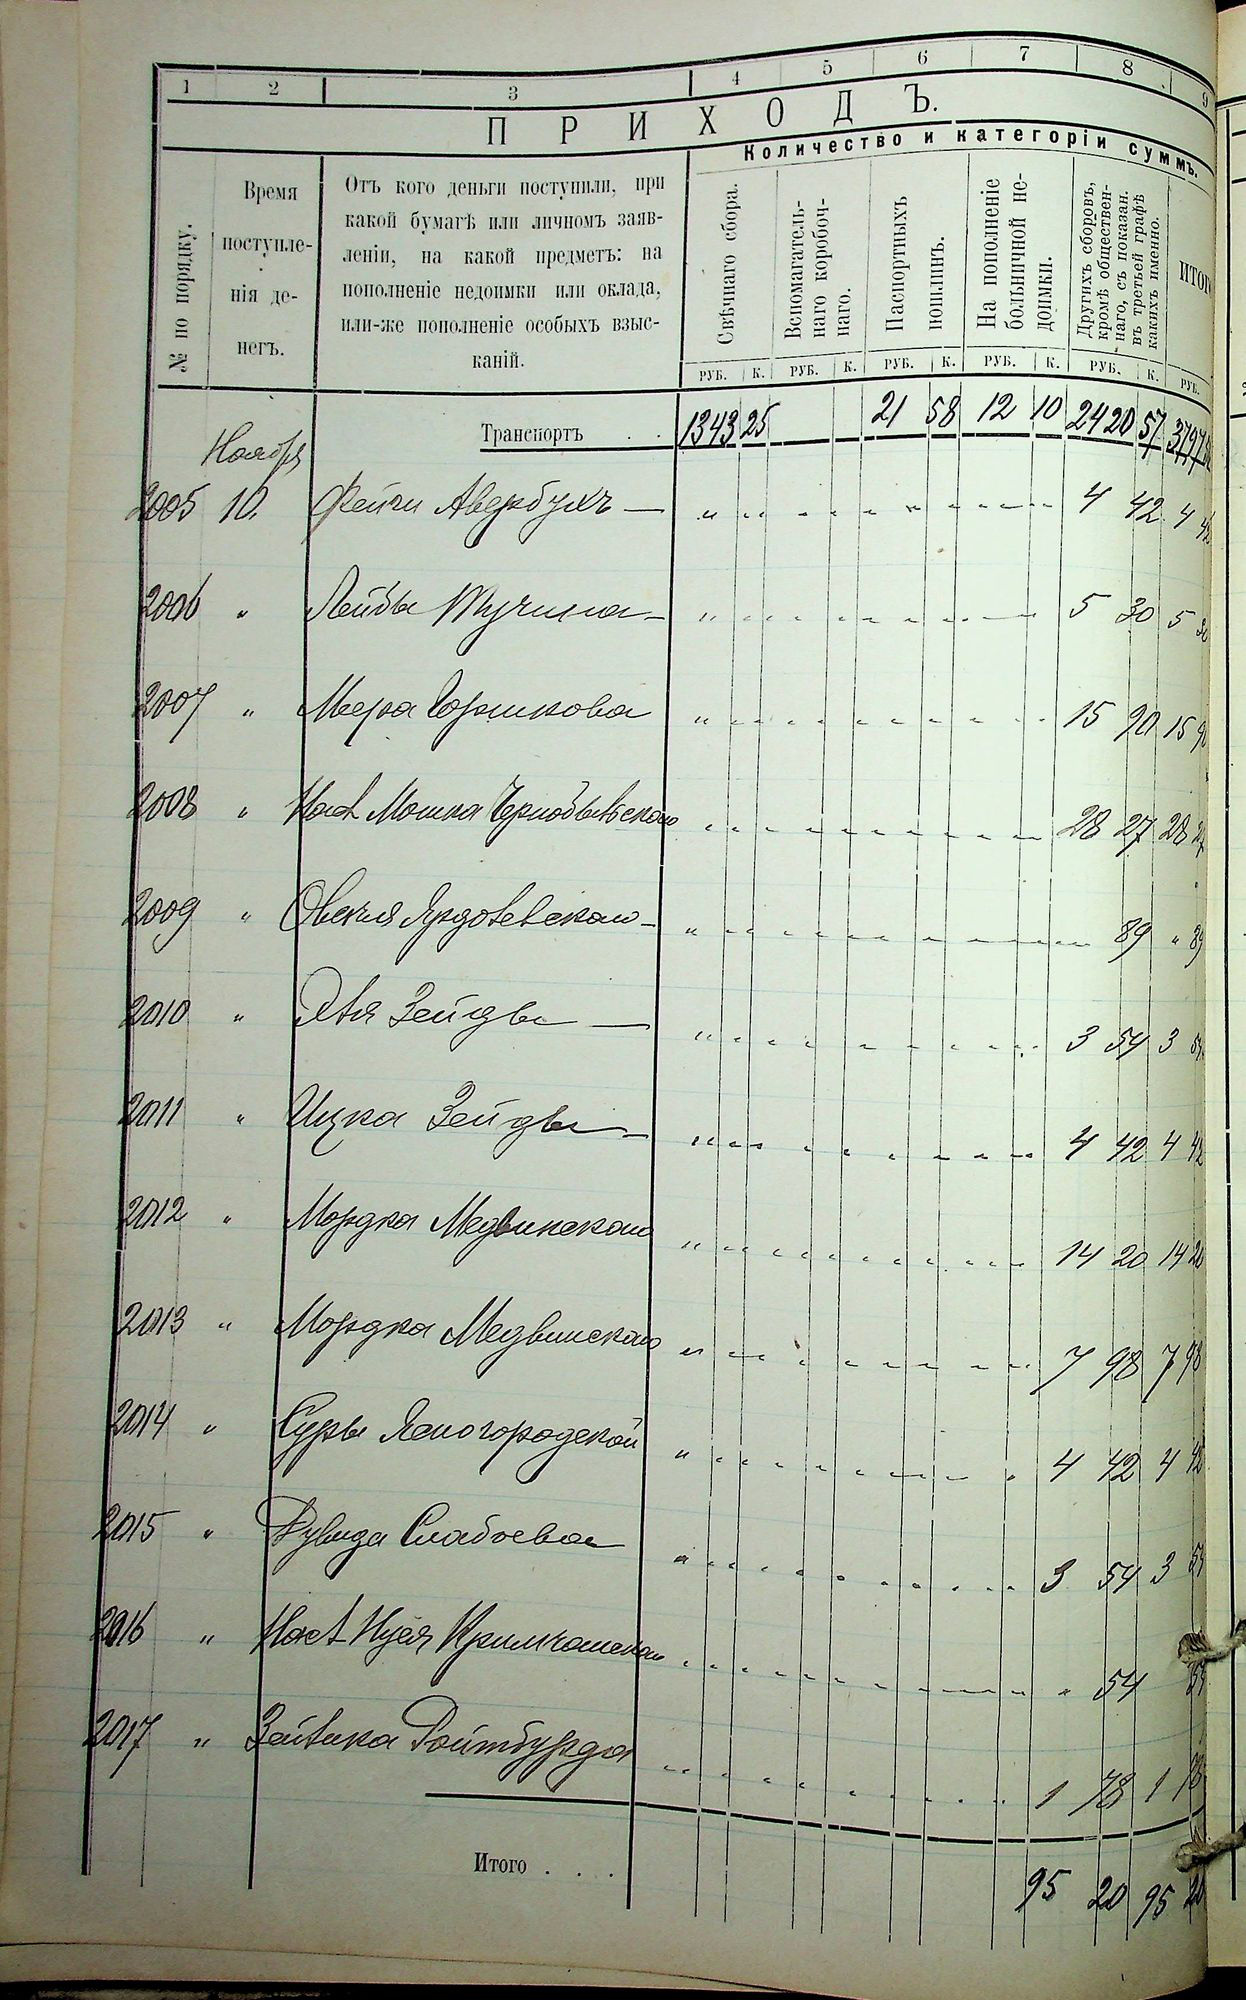 1 2 3 4 5 6 7 8 9
ПРИХОДЪ.
Количество и категоріи суммъ.
№ по порядку.
Время
поступле-
нія де-
негъ.
Отъ кого деньги поступили, при
какой бумагѣ или личномъ заяв-
леніи, на какой предметъ: на
пополненіе недоимки или оклада,
или-же пополненіе особыхъ взыс-
каній.
Свѣчнаго сбора.
Вспомагатель-
наго коробоч-
наго.
Паспортныхъ
пошлинъ.
На пополненіе
больничной не-
доимки.
Другихъ сборовъ,
кромѣ обществен-
наго, съ показан.
въ третьей графѣ
какихъ именно.
ИТОГО
РУБ. К. РУБ. К. РУБ. К. РУБ. К. РУБ. К. РУБ.
Транспортъ . . 1343 25 21 58 12 10 2420 57 3797
Ноября
2005 10. Фейги Авербухъ — 4 42 4 42
2006 " Лейбы Тучина — 5 30 5 30
2007 " Меера Горшкова 15 90 15 90
2008 " Насл Мошка Чернобыльскаго 28 27 28 27
2009 " Овсія 89 " 89
2010 " Зейды — 3 54 3 54
2011 " Ицка Зейды — 4 42 4 42
2012 " Мордка Медвинскаго 14 20 14 20
2013 " Мордка Медвинскаго 7 98 7 98
2014 " Суры Ясногородской 4 42 4 42
2015 " Дувида 3 54 3 54
2016 " Насл 54 54
2017 " Зейлика Ройтбурда 1 78 1 78
Итого . . . 95 20 95 20